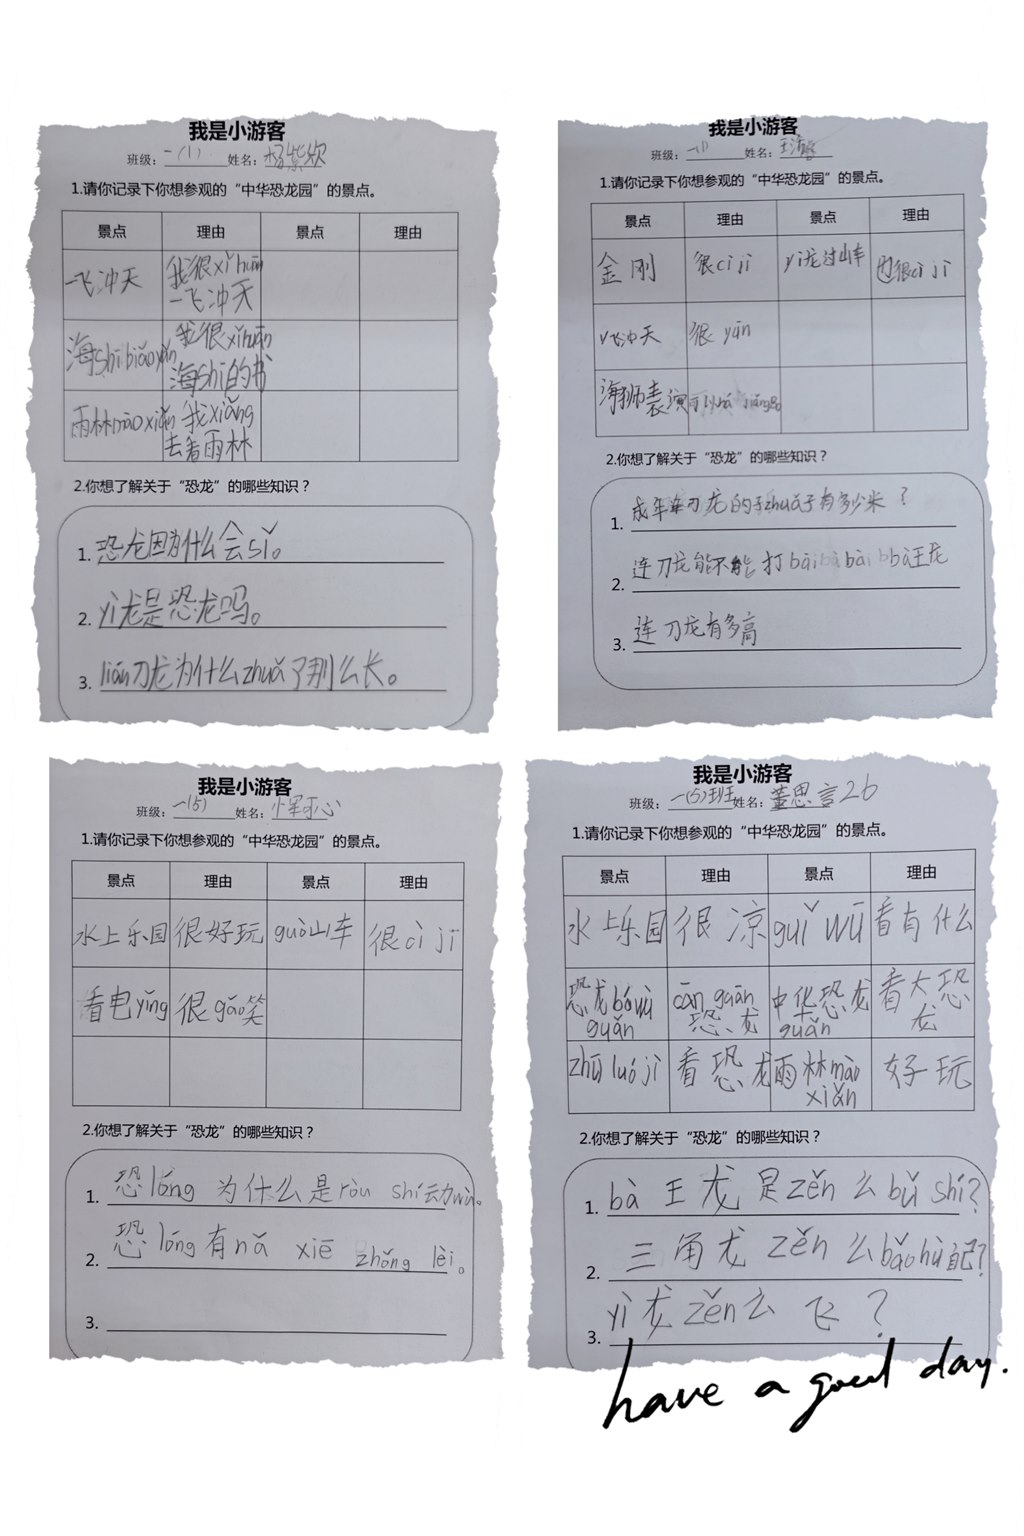 我是小游客
班级：一（1） 姓名：杨紫欣
1.请你记录下你想参观的“中华恐龙园”的景点。
景点 理由 景点 理由
一飞冲天 我很xǐ huān一飞冲天
海shī biǎo yǎn 我很xǐ huān海shī的书
雨林mào xiǎn 我xiǎng去看雨林
2.你想了解关于“恐龙”的哪些知识？
1. 恐龙因为什么会sǐ。
2. yì龙是恐龙吗。
3. lián刀龙为什么zhuǎ了那么长。
我是小游客
班级：一（1） 姓名：王
1.请你记录下你想参观的“中华恐龙园”的景点。
景点 理由 景点 理由
金刚 很cì jī yì龙过山车 也很cì jī
飞冲天 很yūn
海狮表演
2.你想了解关于“恐龙”的哪些知识？
1. 成年 刀龙的zhuǎ子有多少米？
2. 连刀龙能不能打bài bà王龙
3. 连刀龙有多高
我是小游客
班级：一（5） 姓名：恽 心
1.请你记录下你想参观的“中华恐龙园”的景点。
景点 理由 景点 理由
水上乐园 很好玩 guò山车 很cì jī
看电yǐng 很gǎo笑
2.你想了解关于“恐龙”的哪些知识？
1. 恐lóng为什么是ròu shí动wù。
2. 恐lóng有nǎ xiē zhǒng lèi。
3.
我是小游客
班级：一（5）班 姓名：董思言26
1.请你记录下你想参观的“中华恐龙园”的景点。
景点 理由 景点 理由
水上乐园 很凉 guǐ wū 看有什么
恐龙bó wù guǎn cān guān恐龙 中华恐龙guǎn 看大恐龙
zhū luó jì 看恐龙 雨林mào xiǎn 好玩
2.你想了解关于“恐龙”的哪些知识？
1. bà王龙是zěn么bǔ shí？
2. 三角龙zěn么bǎo hù自己？
3. yì龙zěn么飞？
have a good day.